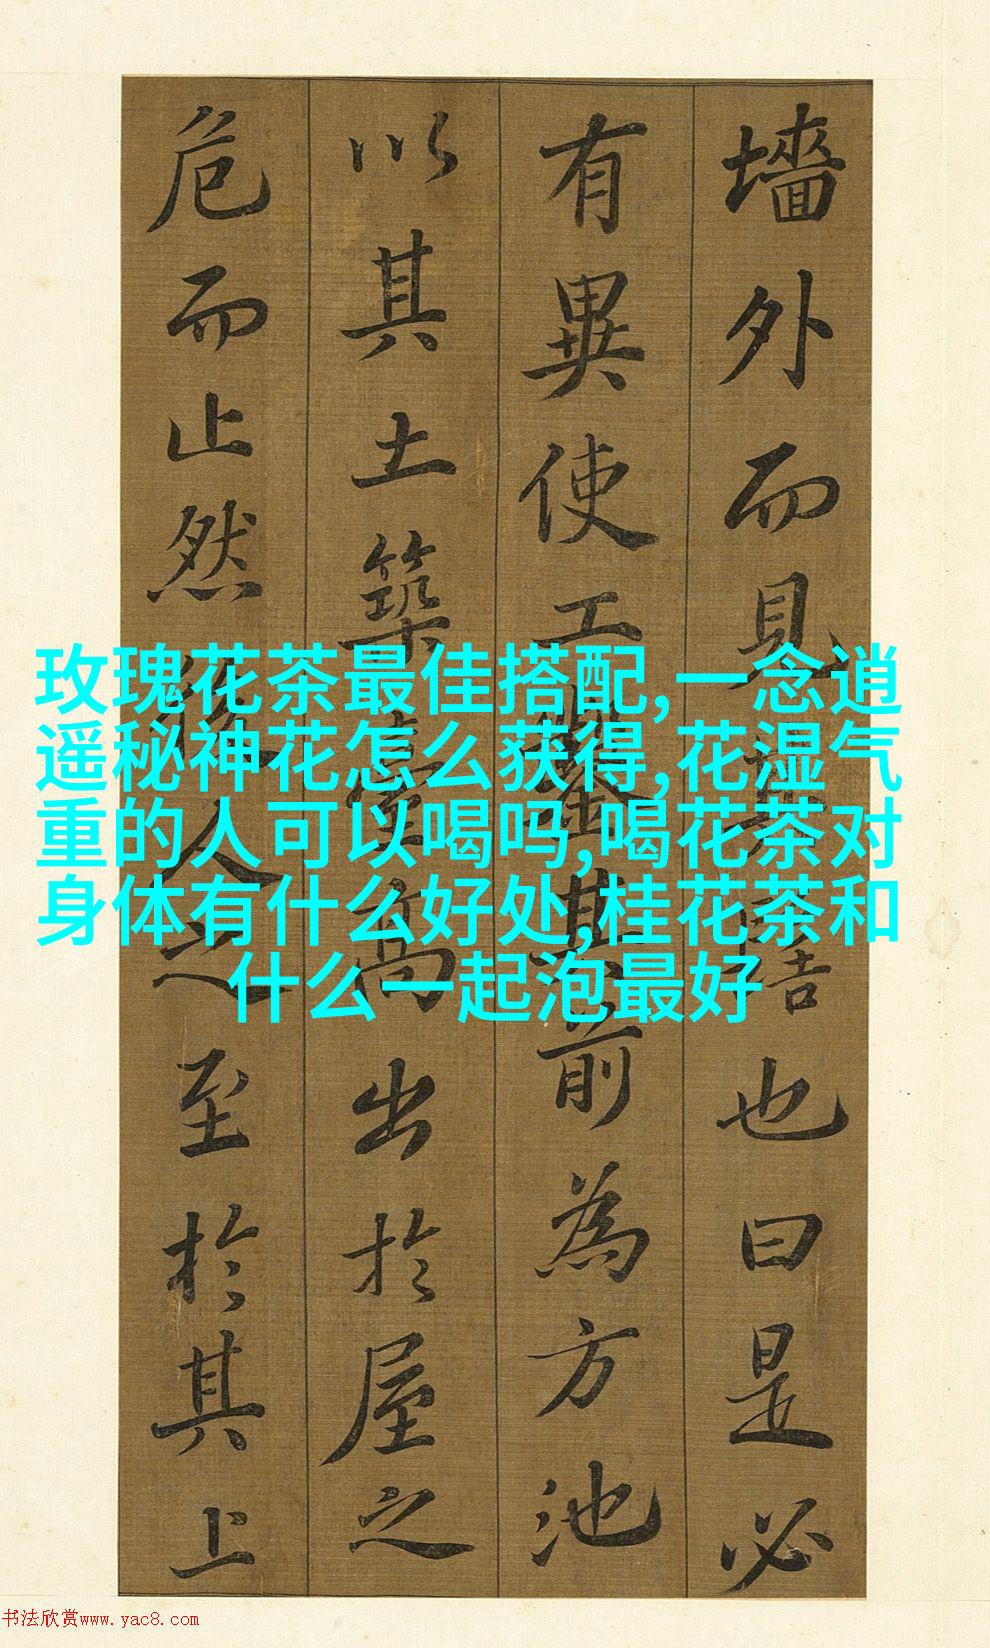 玫瑰花茶最佳搭配,一念逍
遥秘神花怎么获得,花湿气
重的人可以喝吗,喝花茶对
身体有什么好处,桂花茶和
什么一起泡最好
墻外而見其髻也曰是必
有異使工鑿其前為方池
以其土築臺高出於屋之
危而止然後人之至於其上
书法欣赏www.yac8.com